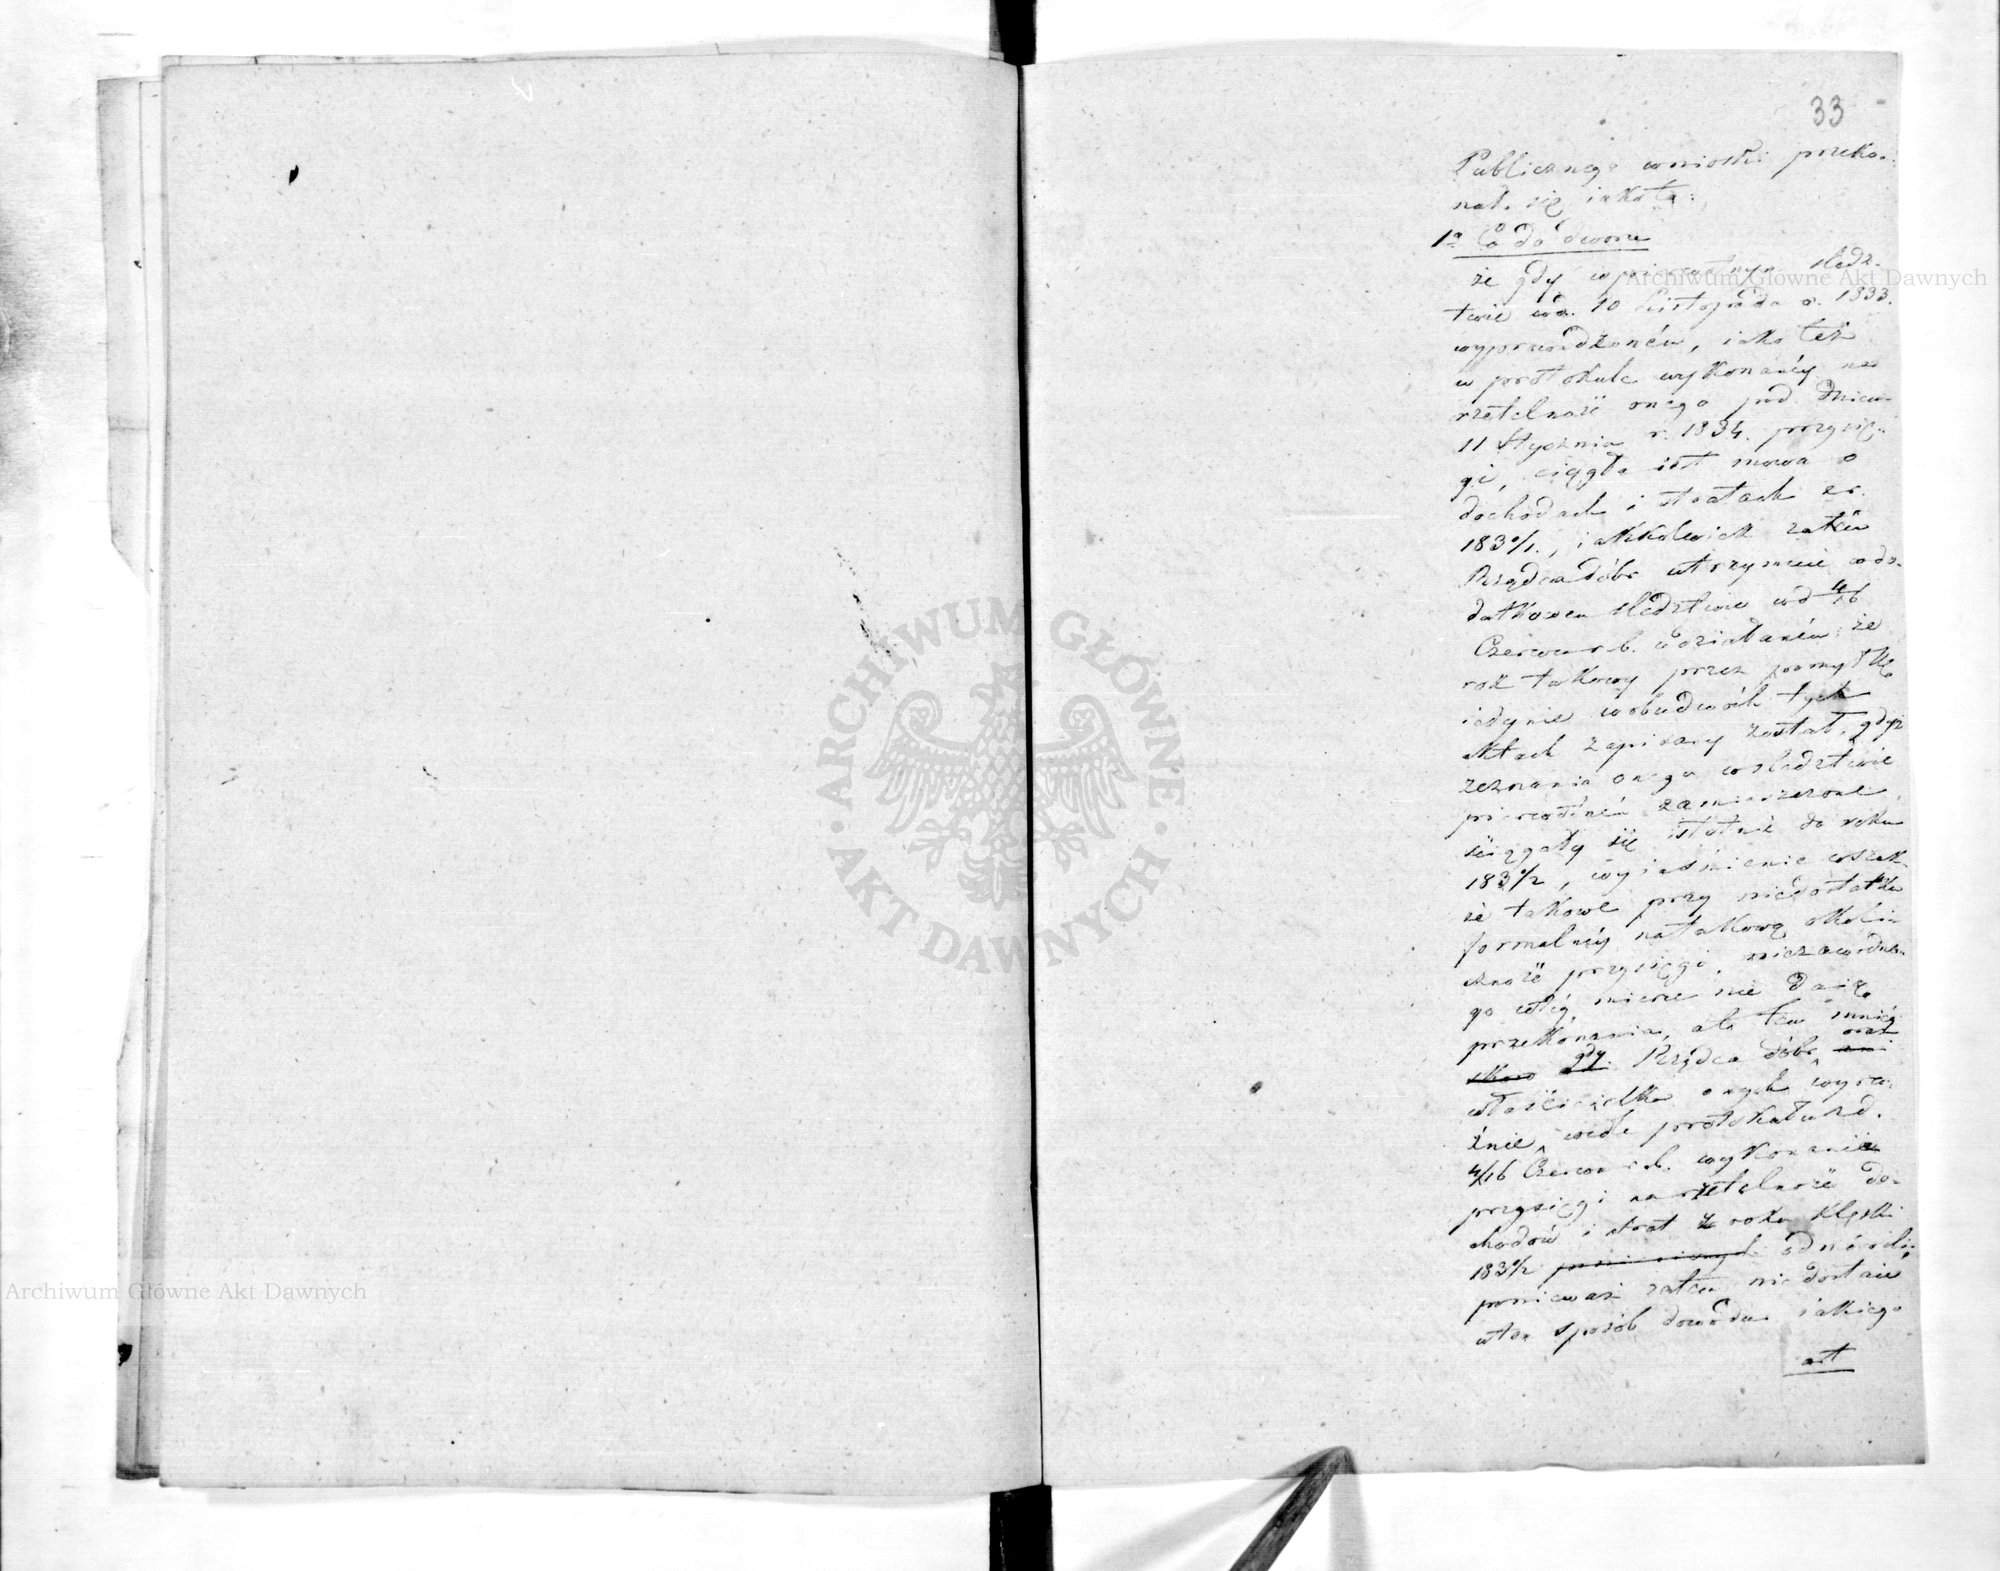 33
Publicznego wniosku przeko-
nał się iakoto:
1° Co do dworu
że gdy w pierwotnym śledz-
twie w d. 10 Listopada r. 1833.
wyprowadzoném, iako też
w protokule wykonanéy na
rzetelność onego pod dniem
11 Stycznia r. 1834. przysię-
gi, ciągle iest mowa o
dochodach i stratach z r.
1830/1., iakkolwiek zatém
Rządca dóbr utrzymuie w do-
datkowem śledztwie w d 4/16
Czerwca r. b. zdziałaném: że
rok takowy przez pomyłkę
iedynie w obudwóch tych
aktach zapisany został, gdyż
zeznania onego w śledztwie
pierwotném zamieszczone
ściągały się istotnie do roku
1831/2, wyiaśnienie wszak-
że takowe przy niedostatku
formalnéy na takową okoli-
czność przysięgi, niezawodne-
go w téy mierze nie daią
przekonania, ale tem mniéy
skoro gdy Rządca dóbr oraz
właścicielka onych wyra-
źnie wedle protokołu z d.
4/16 Czerwca r. b. wykonania
przysięgi na rzetelność do-
chodów i strat z roku klęski
1831/2 odmówili;
ponieważ zatem niedostaie
w ten sposób dowodu iakiego
art
Archiwum Główne Akt Dawnych
Archiwum Główne Akt Dawnych
ARCHIWUM GŁÓWNE · AKT DAWNYCH ·